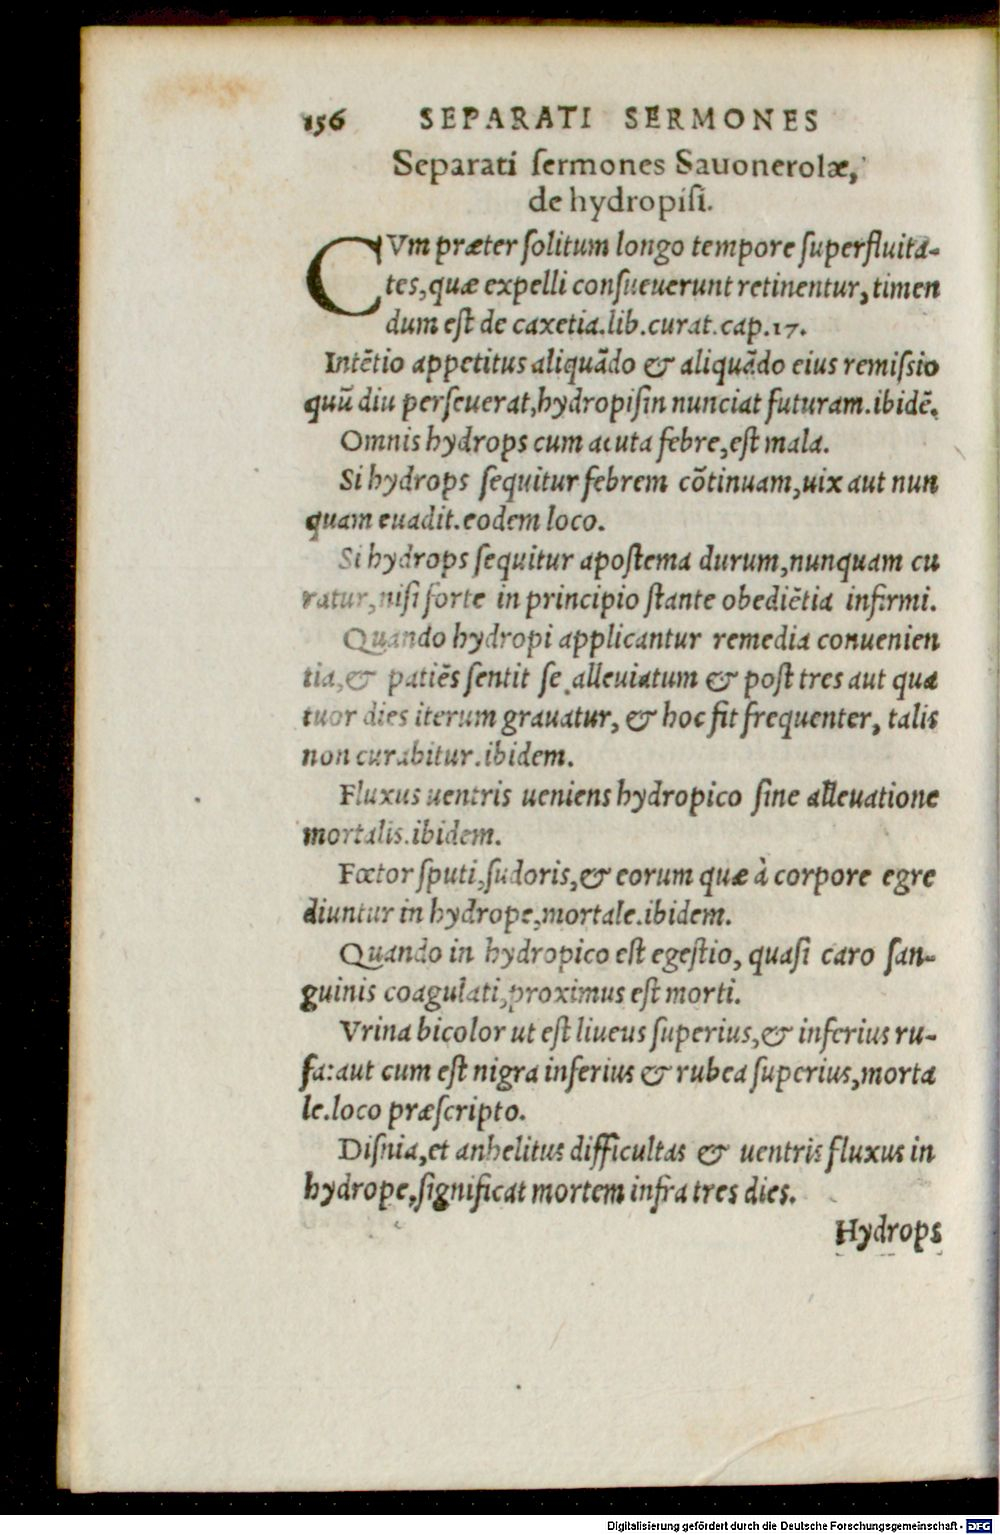 156 SEPARATI SERMONES
Separati ſermones Sauonerolæ,
de hydropiſi.
CVm præter ſolitum longo tempore ſuperfluita-
tes, quæ expelli conſueuerunt retinentur, timen
dum eſt de caxetia.lib.curat.cap.17.
Intẽtio appetitus aliquãdo & aliquãdo eius remiſsio
quũ diu perſeuerat, hydropiſin nunciat futuram.ibidẽ.
Omnis hydrops cum acuta febre, eſt mala.
Si hydrops ſequitur febrem cõtinuam, uix aut nun
quam euadit.eodem loco.
Si hydrops ſequitur apoſtema durum, nunquam cu
ratur, niſi forte in principio ſtante obediẽtia infirmi.
Quando hydropi applicantur remedia conuenien
tia, & patiẽs ſentit ſe alleuiatum & poſt tres aut qua
tuor dies iterum grauatur, & hoc fit frequenter, talis
non curabitur.ibidem.
Fluxus uentris ueniens hydropico ſine alleuatione
mortalis.ibidem.
Fœtor ſputi, ſudoris, & eorum quæ à corpore egre
diuntur in hydrope, mortale.ibidem.
Quando in hydropico eſt egeſtio, quaſi caro ſan-
guinis coagulati, proximus eſt morti.
Vrina bicolor ut eſt liueus ſuperius, & inferius ru-
fa: aut cum eſt nigra inferius & rubea ſuperius, morta
le.loco præſcripto.
Diſnia, et anhelitus difficultas & uentris fluxus in
hydrope, ſignificat mortem infra tres dies.
Hydrops
Digitalisierung gefördert durch die Deutsche Forschungsgemeinschaft - DFG